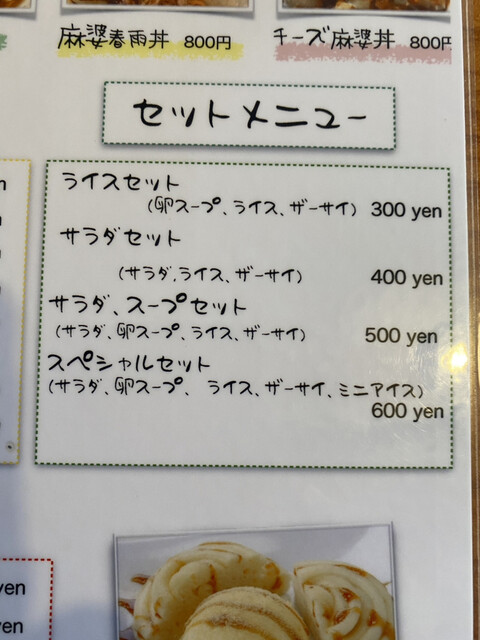 麻婆春雨丼 800円
チーズ麻婆丼 800円
セットメニュー
ライスセット
(卵スープ、ライス、ザーサイ) 300 yen
サラダセット
(サラダ,ライス、ザーサイ) 400 yen
サラダ、スープセット
(サラダ、卵スープ、ライス、ザーサイ) 500 yen
スペシャルセット
(サラダ、卵スープ、 ライス、ザーサイ、ミニアイス)
600 yen
yen
yen